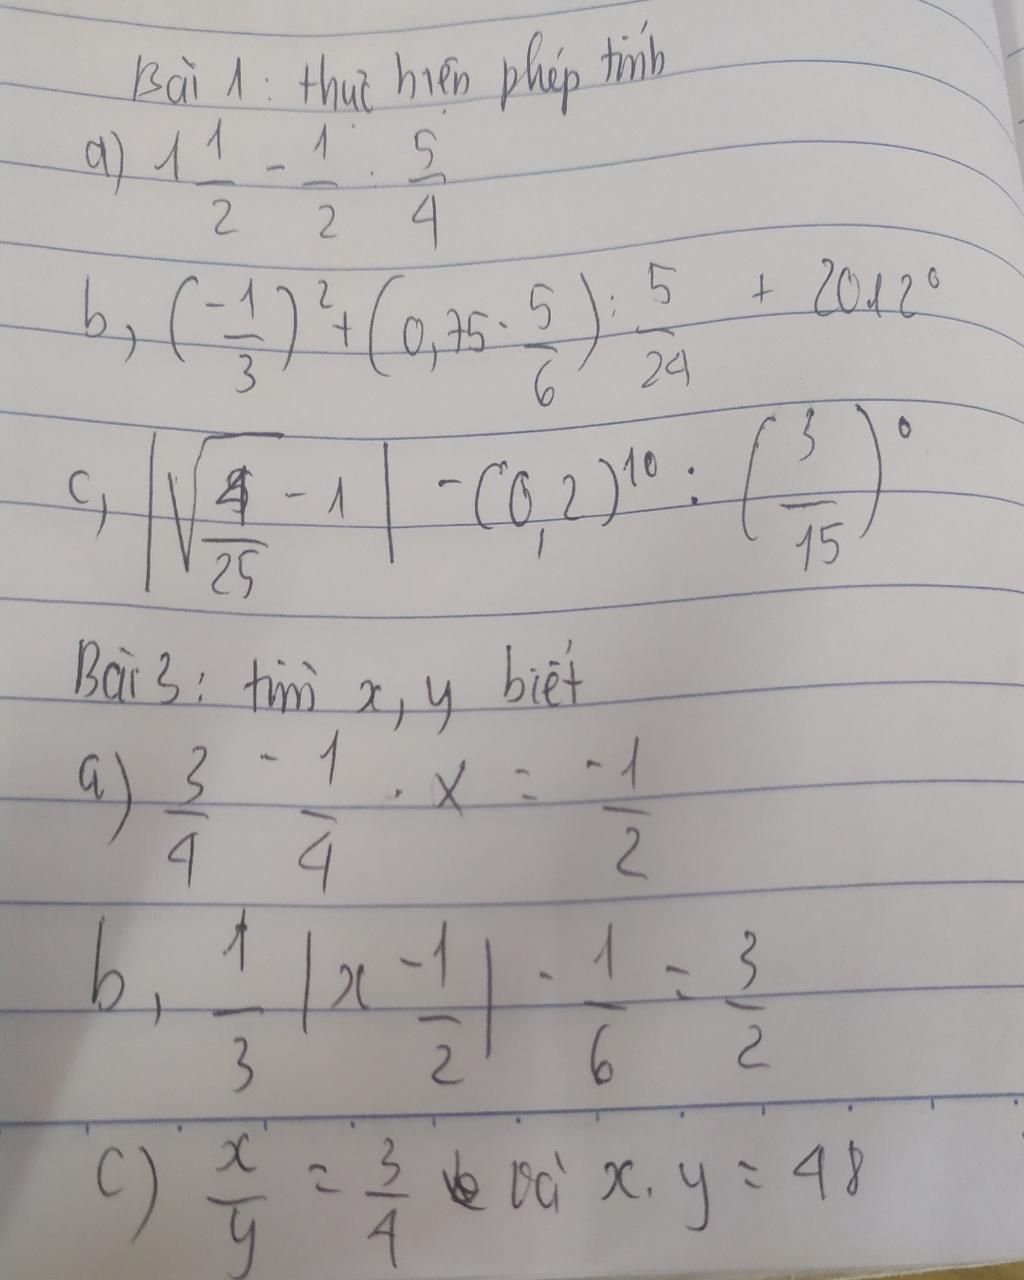 Bài 1: thực hiện phép tính
a) 1 1/2 - 1/2 . 5/4
b, (-1/3)² + (0,75 . 5/6) : 5/24 + 2012⁰
c, |√(4/25) - 1| - (0,2)¹⁰ : (3/15)⁰
Bài 3: tìm x, y biết
a) 3/4 - 1/4 . x = -1/2
b, 1/3 |x - 1/2| - 1/6 = 3/2
c) x/y = 3/4 và x . y = 48